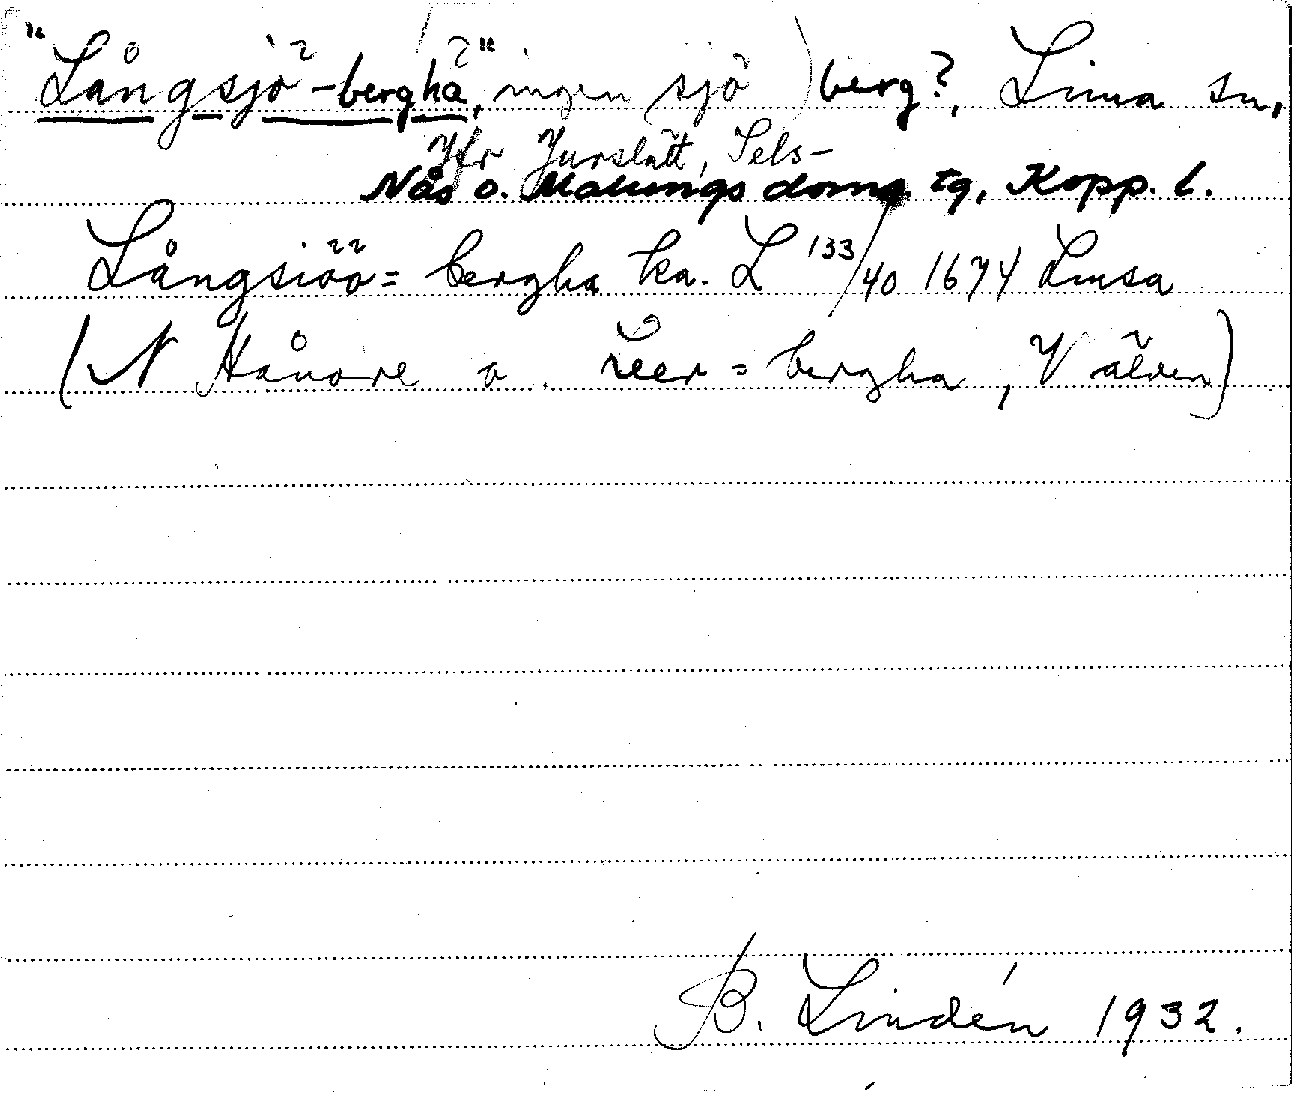 "Långsjö-bergha", ingen sjö) berg?, Lima sn,
Jfr Jurslätt, Sels-
Nås o. Malungs doms. tg, Kopp. l.
Långsiöö= bergha ka. L 133/40 1674 Limsa
(N Hånore o. Leer=bergha, V älven)
B. Lindén 1932.